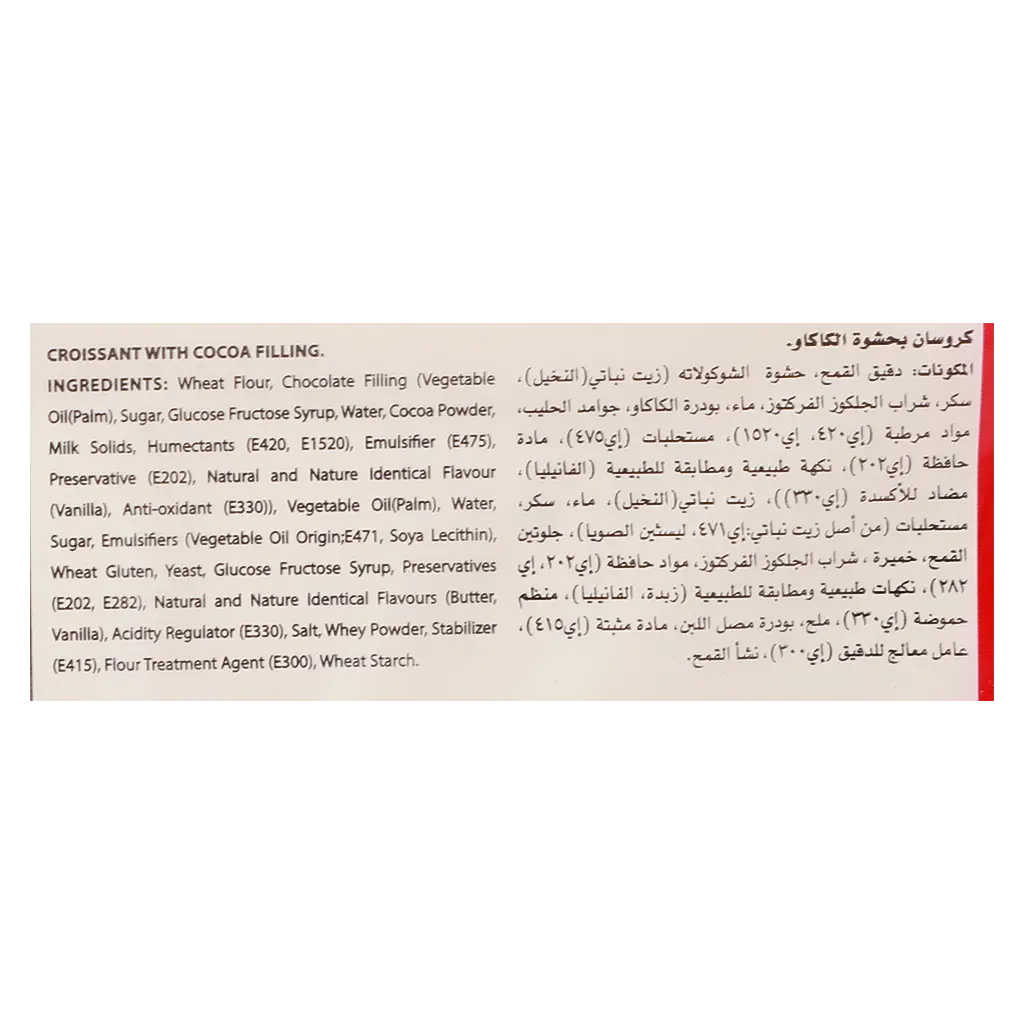 CROISSANT WITH COCOA FILLING.
INGREDIENTS: Wheat Flour, Chocolate Filling (Vegetable
Oil(Palm), Sugar, Glucose Fructose Syrup, Water, Cocoa Powder,
Milk Solids, Humectants (E420, E1520), Emulsifier (E475),
Preservative (E202), Natural and Nature Identical Flavour
(Vanilla), Anti-oxidant (E330)), Vegetable Oil(Palm), Water,
Sugar, Emulsifiers (Vegetable Oil Origin;E471, Soya Lecithin),
Wheat Gluten, Yeast, Glucose Fructose Syrup, Preservatives
(E202, E282), Natural and Nature Identical Flavours (Butter,
Vanilla), Acidity Regulator (E330), Salt, Whey Powder, Stabilizer
(E415), Flour Treatment Agent (E300), Wheat Starch.
كروسان بحشوة الكاكاو.
المكونات: دقيق القمح، حشوة الشوكولاته (زيت نباتي(النخيل)،
سكر، شراب الجلكوز الفركتوز، ماء، بودرة الكاكاو، جوامد الحليب،
مواد مرطبة (إي٤٢٠، إي١٥٢٠)، مستحلبات (إي٤٧٥)، مادة
حافظة (إي٢٠٢)، نكهة طبيعية ومطابقة للطبيعية (الفانيليا)،
مضاد للأكسدة (إي٣٣٠))، زيت نباتي(النخيل)، ماء، سكر،
مستحلبات (من أصل زيت نباتي:إي٤٧١، ليسثين الصويا)، جلوتين
القمح، خميرة ، شراب الجلكوز الفركتوز، مواد حافظة (إي٢٠٢، إي
٢٨٢)، نكهات طبيعية ومطابقة للطبيعية (زبدة، الفانيليا)، منظم
حموضة (إي٣٣٠)، ملح، بودرة مصل اللبن، مادة مثبتة (إي٤١٥)،
عامل معالج للدقيق (إي٣٠٠)، نشأ القمح.